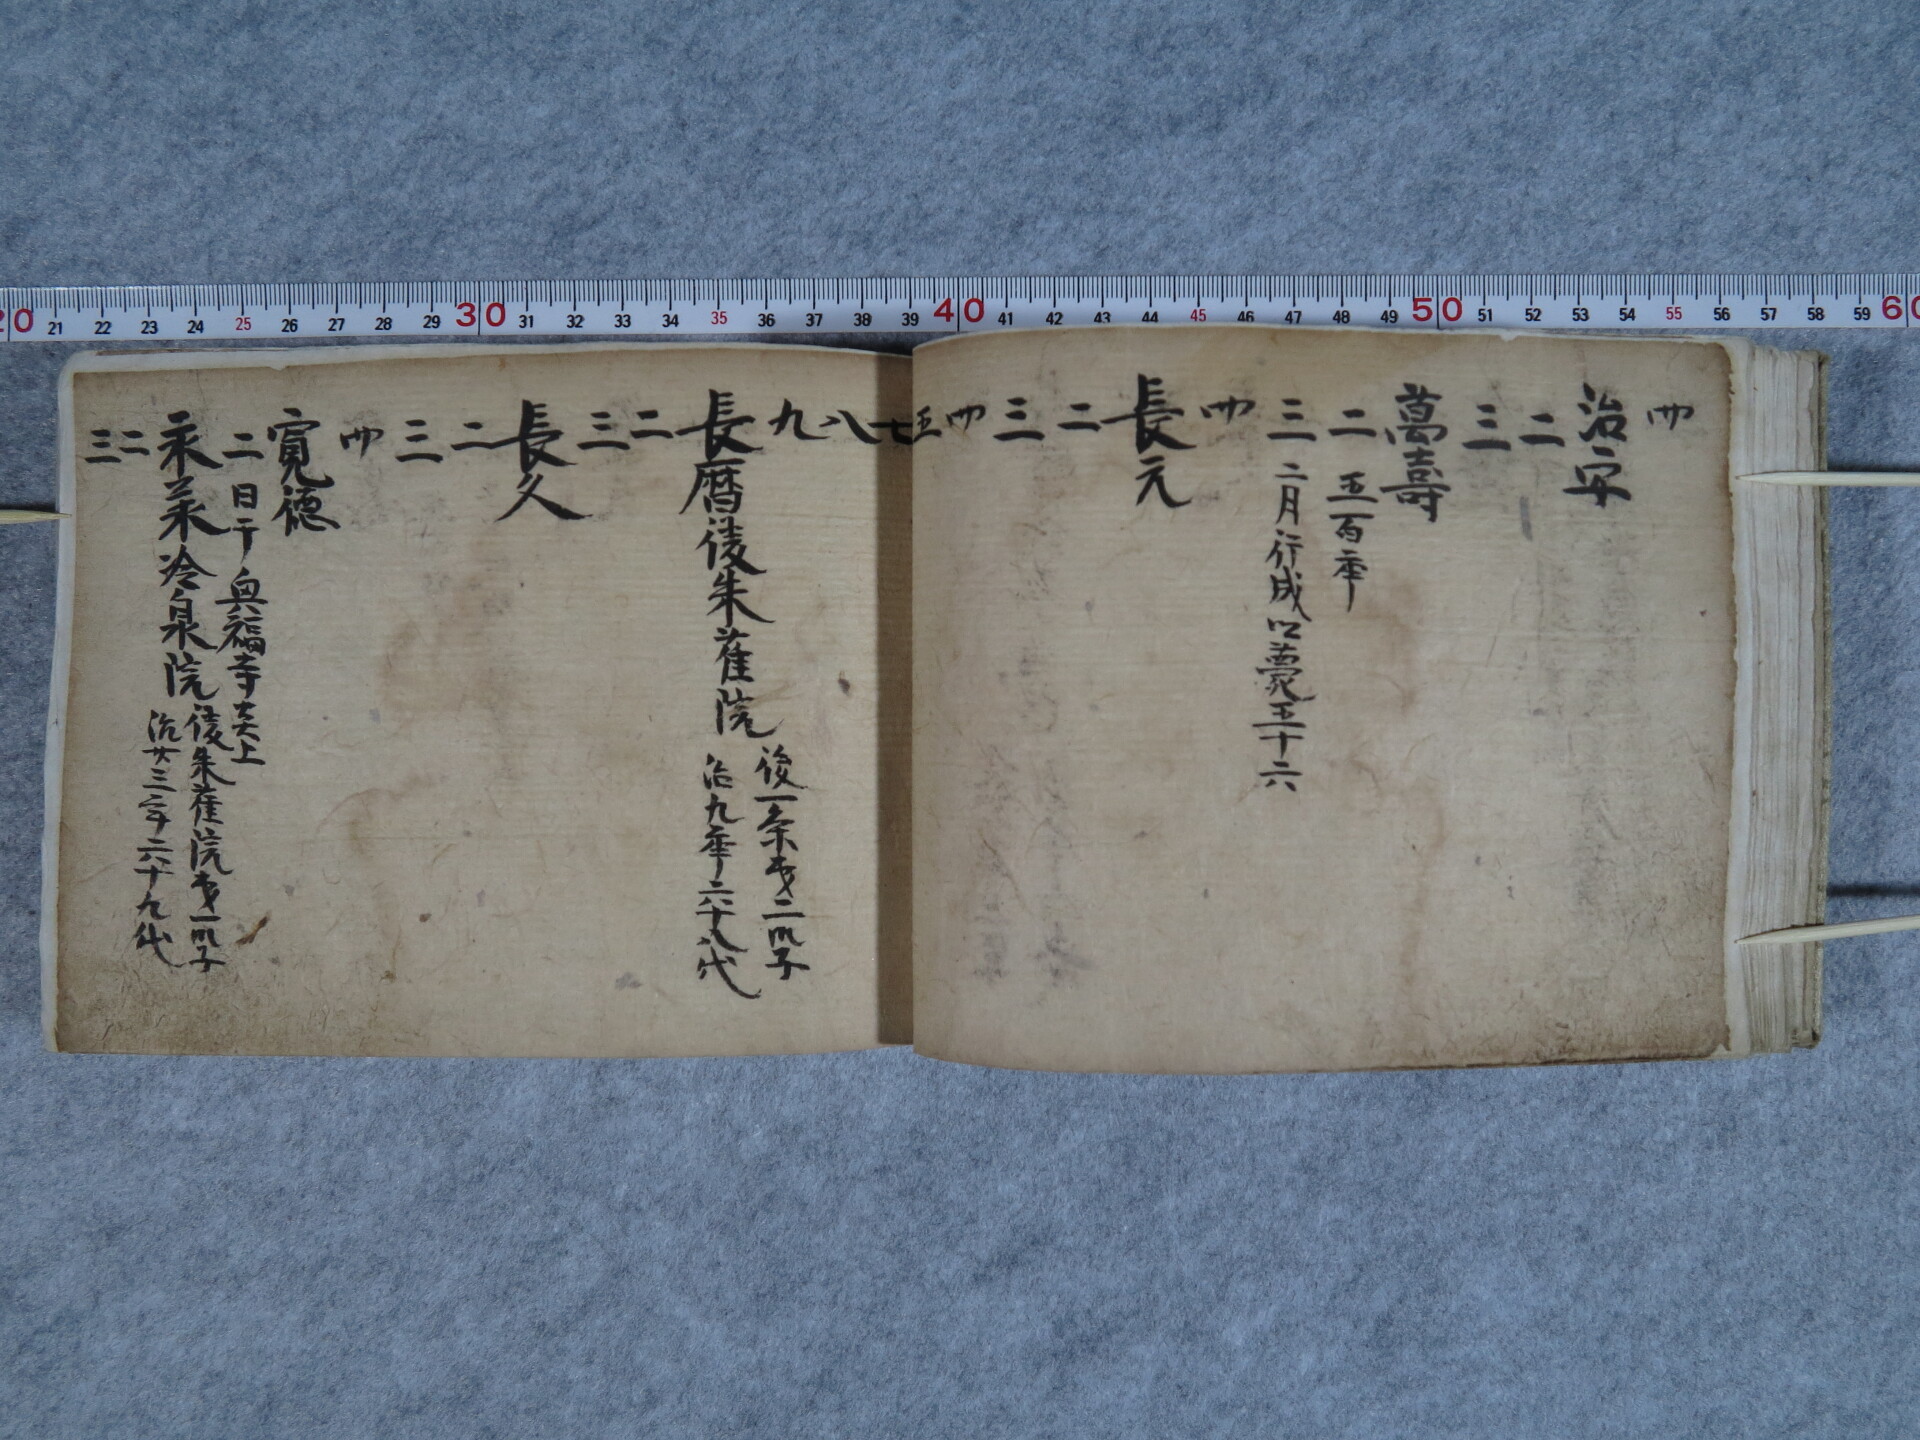 20 21 22 23 24 25 26 27 28 29 30 31 32 33 34 35 36 37 38 39 40 41 42 43 44 45 46 47 48 49 50 51 52 53 54 55 56 57 58 59 60
四
治安
二
三
萬壽
二 五百年
三 二月行成公薨五十六
四
長元
二
三
四
五
七
八
九
長暦後朱雀院
後一条第二子
治九年六十八代
二
三
長久
二
三
四
寛徳
二 日干 興福寺炎上
永承冷泉院
後朱雀院第一子
治廿三年六十九代
二
三